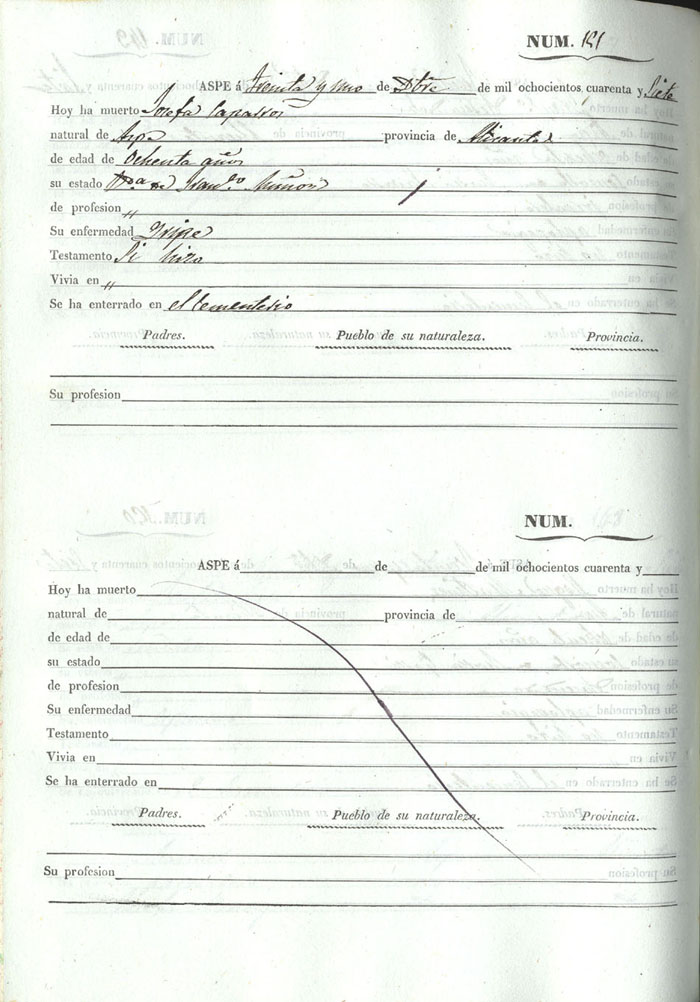 NUM. 151
ASPE á Treinta y uno de Dbre de mil ochocientos cuarenta y Siete
Hoy ha muerto Josefa
natural de Aspe provincia de Alicante
de edad de Ochenta años
su estado Vda de Fran.co Muñoz
de profesion "
Su enfermedad gripe
Testamento Si hizo
Vivia en "
Se ha enterrado en el Cementerio
Padres. Pueblo de su naturaleza. Provincia.
Su profesion
NUM.
ASPE á de de mil ochocientos cuarenta y
Hoy ha muerto
natural de provincia de
de edad de
su estado
de profesion
Su enfermedad
Testamento
Vivia en
Se ha enterrado en
Padres. Pueblo de su naturaleza. Provincia.
Su profesion